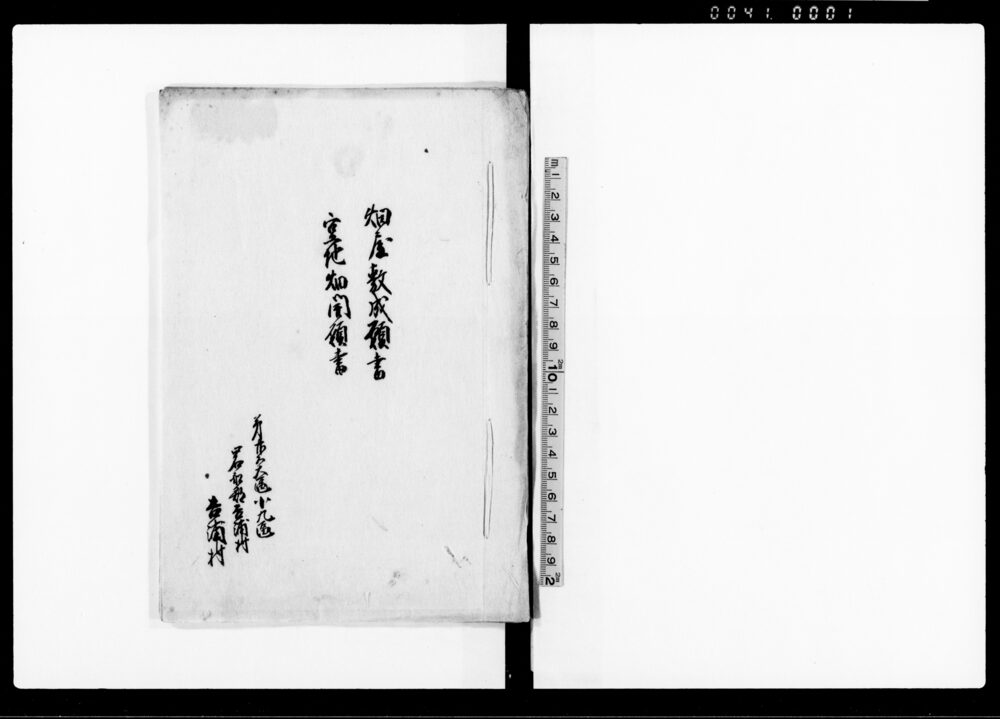 0041 0001
畑屋敷成願書
宅地畑開願書
第十六大区小九区
吉浦村
吉浦村
m 1 2 3 4 5 6 7 8 9 10 1 2 3 4 5 6 7 8 9 2